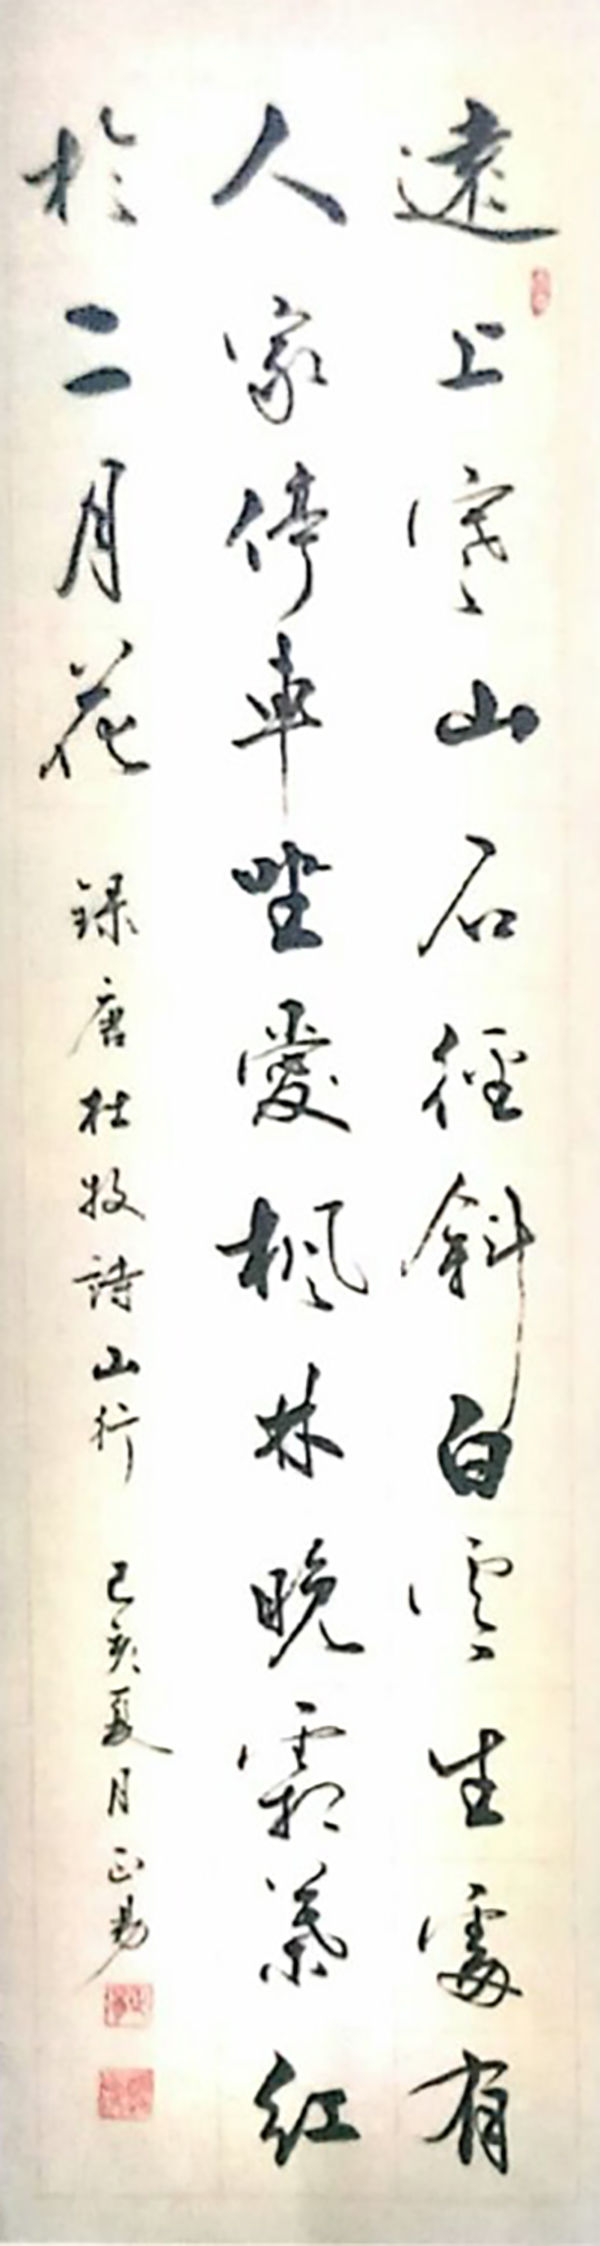 遠上寒山石徑斜白雲生處有
人家停車坐愛楓林晚霜葉紅
於二月花 録唐杜牧詩山行 己亥夏月正易